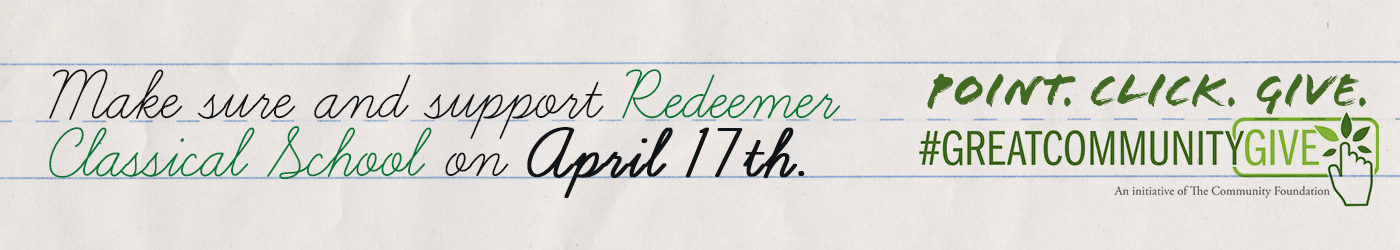 Make sure and support Redeemer
Classical School on April 17th.
POINT. CLICK. GIVE.
#GREATCOMMUNITYGIVE
An initiative of The Community Foundation